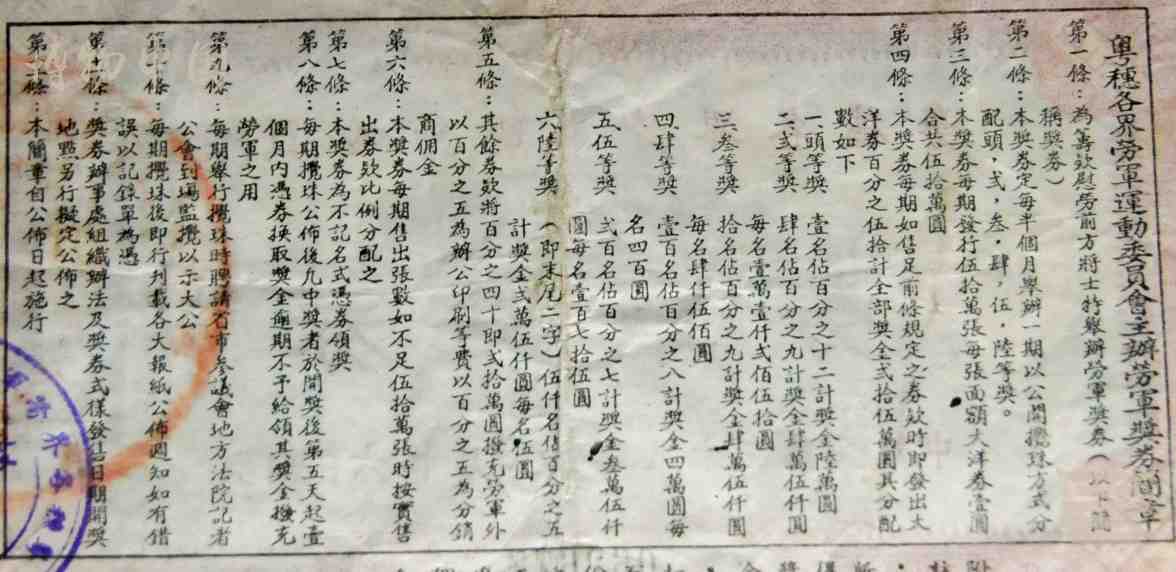 粵穗各界勞軍運動委員會主辦勞軍獎券簡章
第一條：為籌欵慰勞前方將士特舉辦勞軍獎券（以下簡
稱獎券）
第二條：本獎券定每半個月舉辦一期以公開攪珠方式分
配頭，弍，叁，肆，伍，陸等獎。
第三條：本獎券每期發行伍拾萬張每張面額大洋券壹圓
合共伍拾萬圓
第四條：本獎券每期如售足前條規定之券欵時即發出大
洋券百分之伍拾計全部獎金弍拾伍萬圓其分配
數如下
一頭等獎　壹名佔百分之十二計獎金陸萬圓
二弍等獎　肆名佔百分之九計獎金肆萬伍仟圓
每名壹萬壹仟弍佰伍拾圓
三叁等獎　拾名佔百分之九計獎金肆萬伍仟圓
每名肆仟伍佰圓
四肆等獎　壹百名佔百分之八計獎金四萬圓每
名四百圓
五伍等獎　弍百名佔百分之七計獎金叁萬伍仟
圓每名壹百七拾伍圓
六陸等獎　（即末尾二字）伍仟名佔百分之五
計獎金弍萬伍仟圓每名伍圓
第五條：其餘券欵將百分之四十即弍拾萬圓撥充勞軍外
以百分之五為辦公印刷等費以百分之五為分銷
商佣金
第六條：本獎券每期售出張數如不足伍拾萬張時按實售
出券欵比例分配之
第七條：本獎券為不記名式憑券領獎
第八條：每期攪珠公佈後凡中獎者於開獎後第五天起壹
個月內憑券换取獎金逾期不予給領其獎金撥充
勞軍之用
第九條：每期舉行攪珠時聘請省市參議會地方法院記者
公會到場監攪以示大公
第十條：每期攪珠後即行刋載各大報紙公佈週知如有錯
誤以記錄單為憑
第十一條：獎券辦事處組織辦法及獎券式樣發售日期開獎
地點另行擬定公佈之
第十二條：本簡章自公佈日起施行